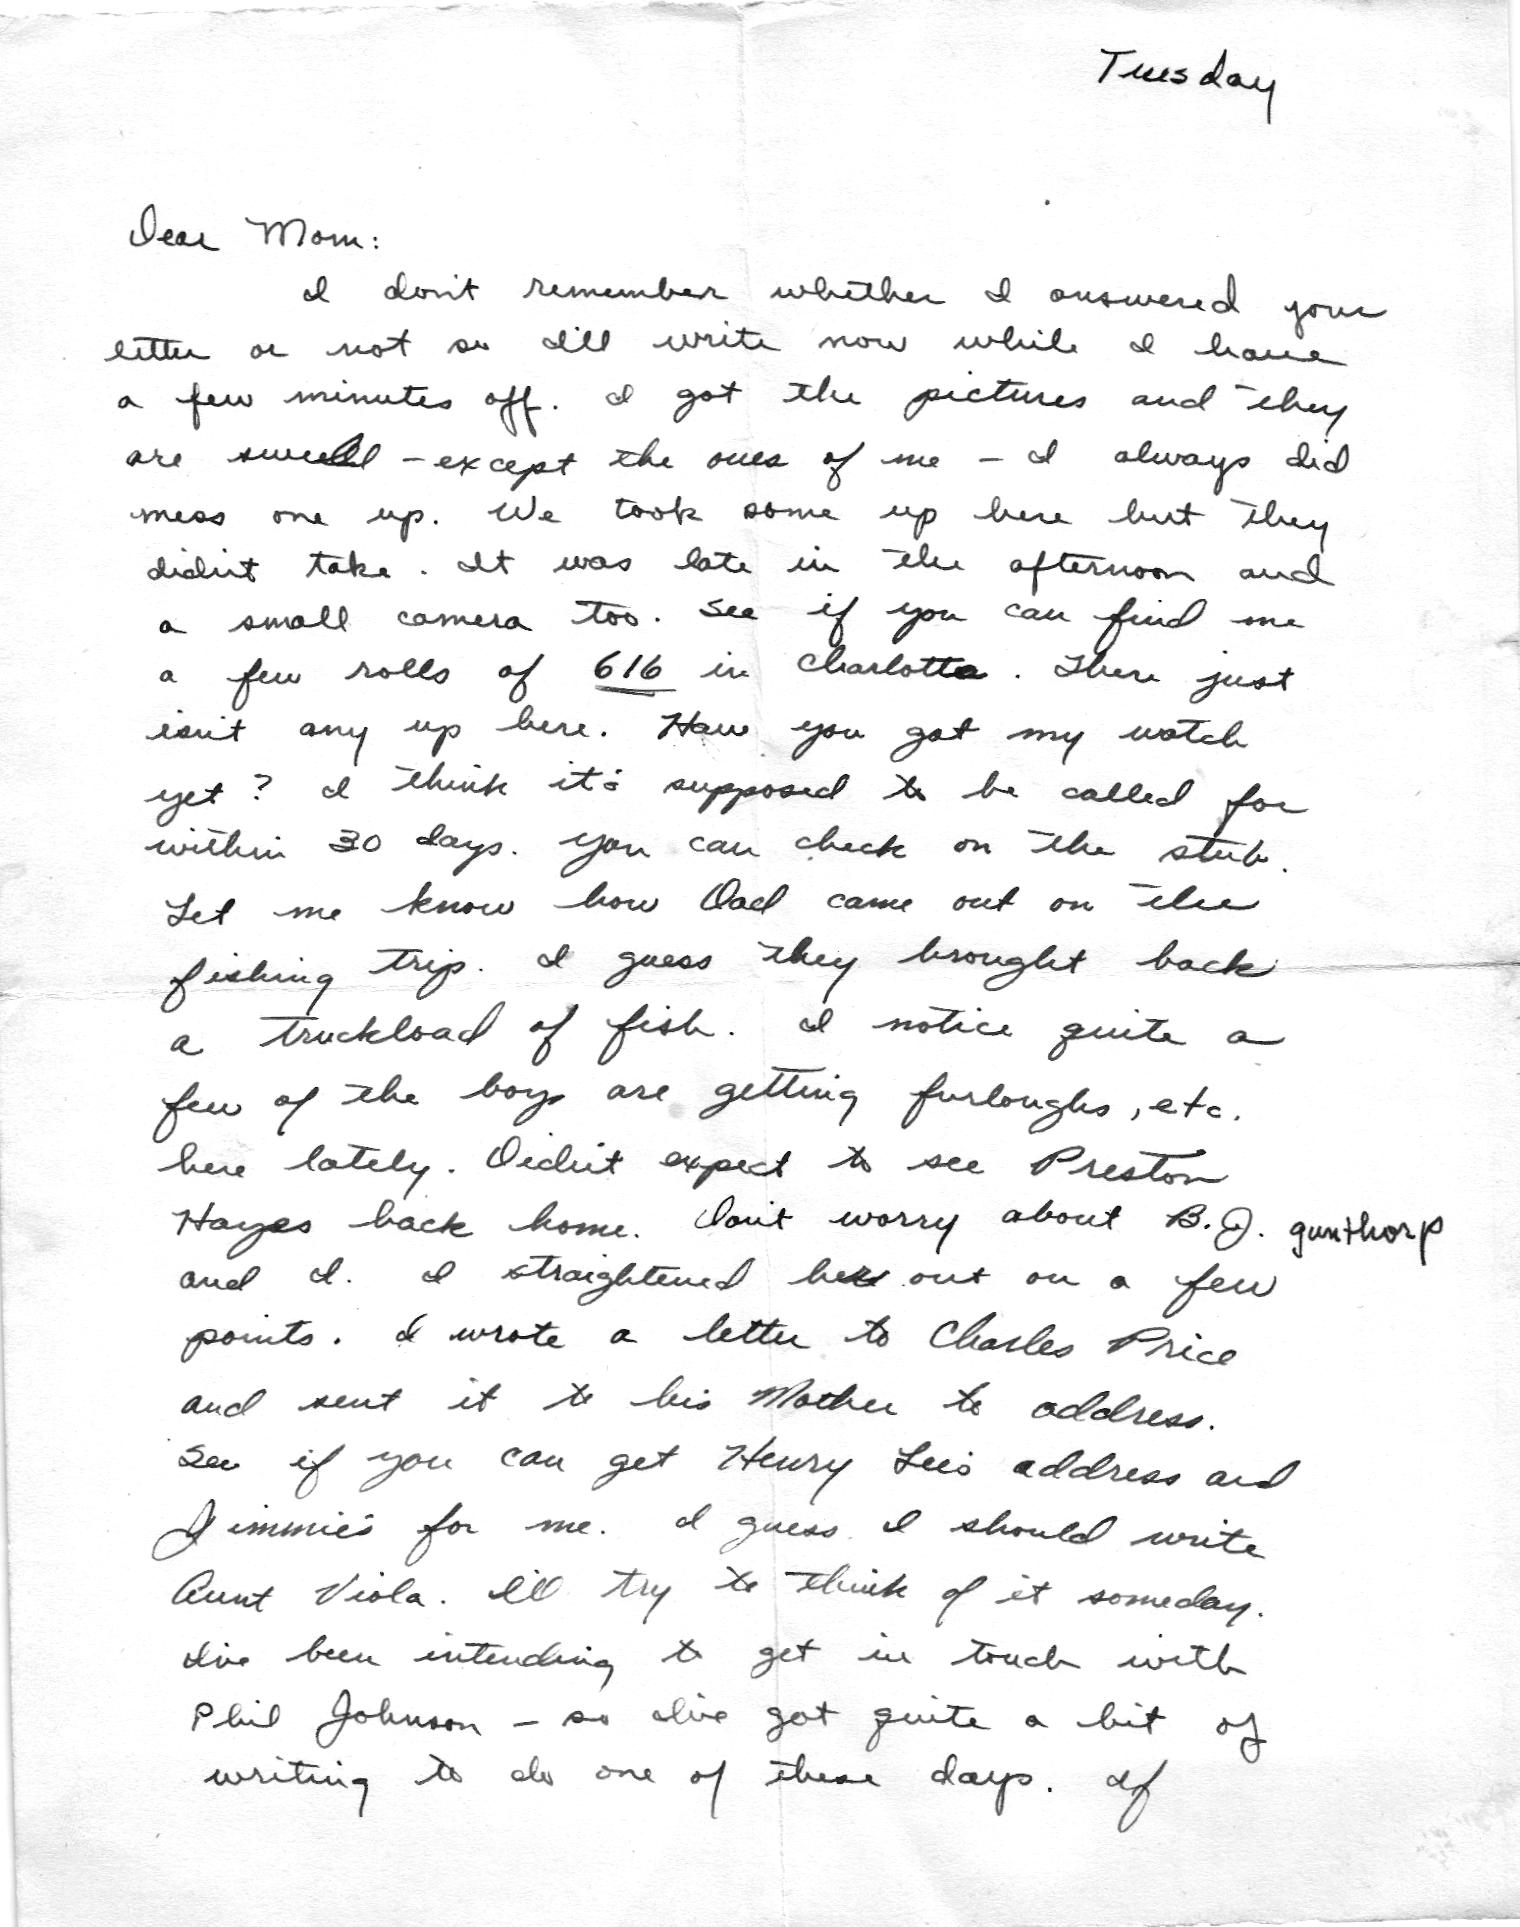 Tuesday
Dear Mom:
I don't remember whether I answered your
letter or not so I'll write now while I have
a few minutes off. I got the pictures and they
are swell - except the ones of me - I always did
mess one up. We took some up here but they
didn't take. It was late in the afternoon and
a small camera too. See if you can find me
a few rolls of 616 in Charlotte. There just
isn't any up here. Have you got my watch
yet? I think it's supposed to be called for
within 30 days. You can check on the stub.
Let me know how Dad came out on the
fishing trip. I guess they brought back
a truckload of fish. I notice quite a
few of the boys are getting furloughs, etc.
here lately. Didn't expect to see Preston
Hayes back home. Don't worry about B.J. gunthorp
and I. I straightened her out on a few
points. I wrote a letter to Charles Price
and sent it to his Mother to address.
See if you can get Henry Lee's address and
Jimmie's for me. I guess I should write
Aunt Viola. I'll try to think of it someday.
I've been intending to get in touch with
Phil Johnson - so I've got quite a bit of
writing to do one of these days. If